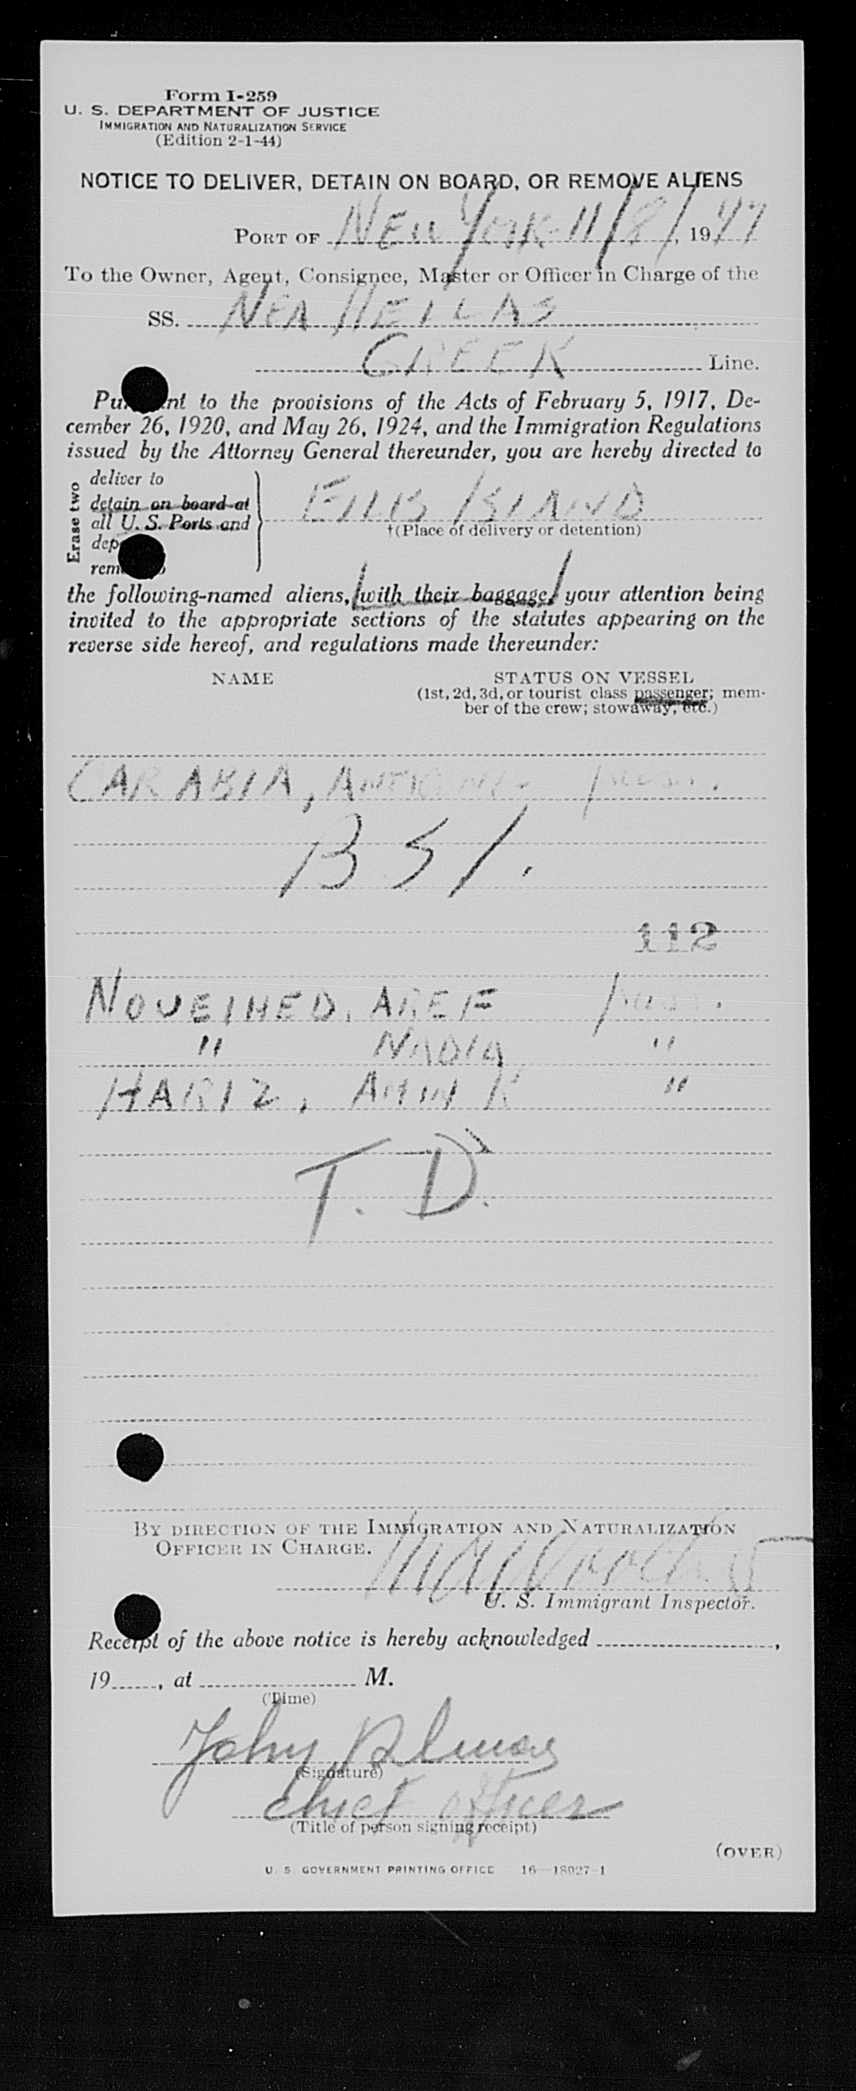 Form I-259
U. S. DEPARTMENT OF JUSTICE
IMMIGRATION AND NATURALIZATION SERVICE
(Edition 2-1-44)
NOTICE TO DELIVER, DETAIN ON BOARD, OR REMOVE ALIENS
PORT OF NEW YORK 11/8/, 1947
To the Owner, Agent, Consignee, Master or Officer in Charge of the
SS. NEA HELLAS
GREEK Line.
to the provisions of the Acts of February 5, 1917, De-
cember 26, 1920, and May 26, 1924, and the Immigration Regulations
issued by the Attorney General thereunder, you are hereby directed to
Erase two
deliver to
detain on board at
all U. S. Ports and
ELLIS ISLAND
†(Place of delivery or detention)
the following-named aliens, (with their baggage) your attention being
invited to the appropriate sections of the statutes appearing on the
reverse side hereof, and regulations made thereunder:
NAME STATUS ON VESSEL
(1st, 2d, 3d, or tourist class passenger; mem-
ber of the crew; stowaway, etc.)
CARABIA, pass.
B S I.
112
NOUEIHED, AREF pass.
" NADIA "
HARIZ, AMIN K "
T. D.
BY DIRECTION OF THE IMMIGRATION AND NATURALIZATION
OFFICER IN CHARGE.
U. S. Immigrant Inspector.
Receipt of the above notice is hereby acknowledged ,
19 , at M.
(Time)
John
(Signature)
chief officer
(Title of person signing receipt)
(OVER)
U. S. GOVERNMENT PRINTING OFFICE 16—18027-1